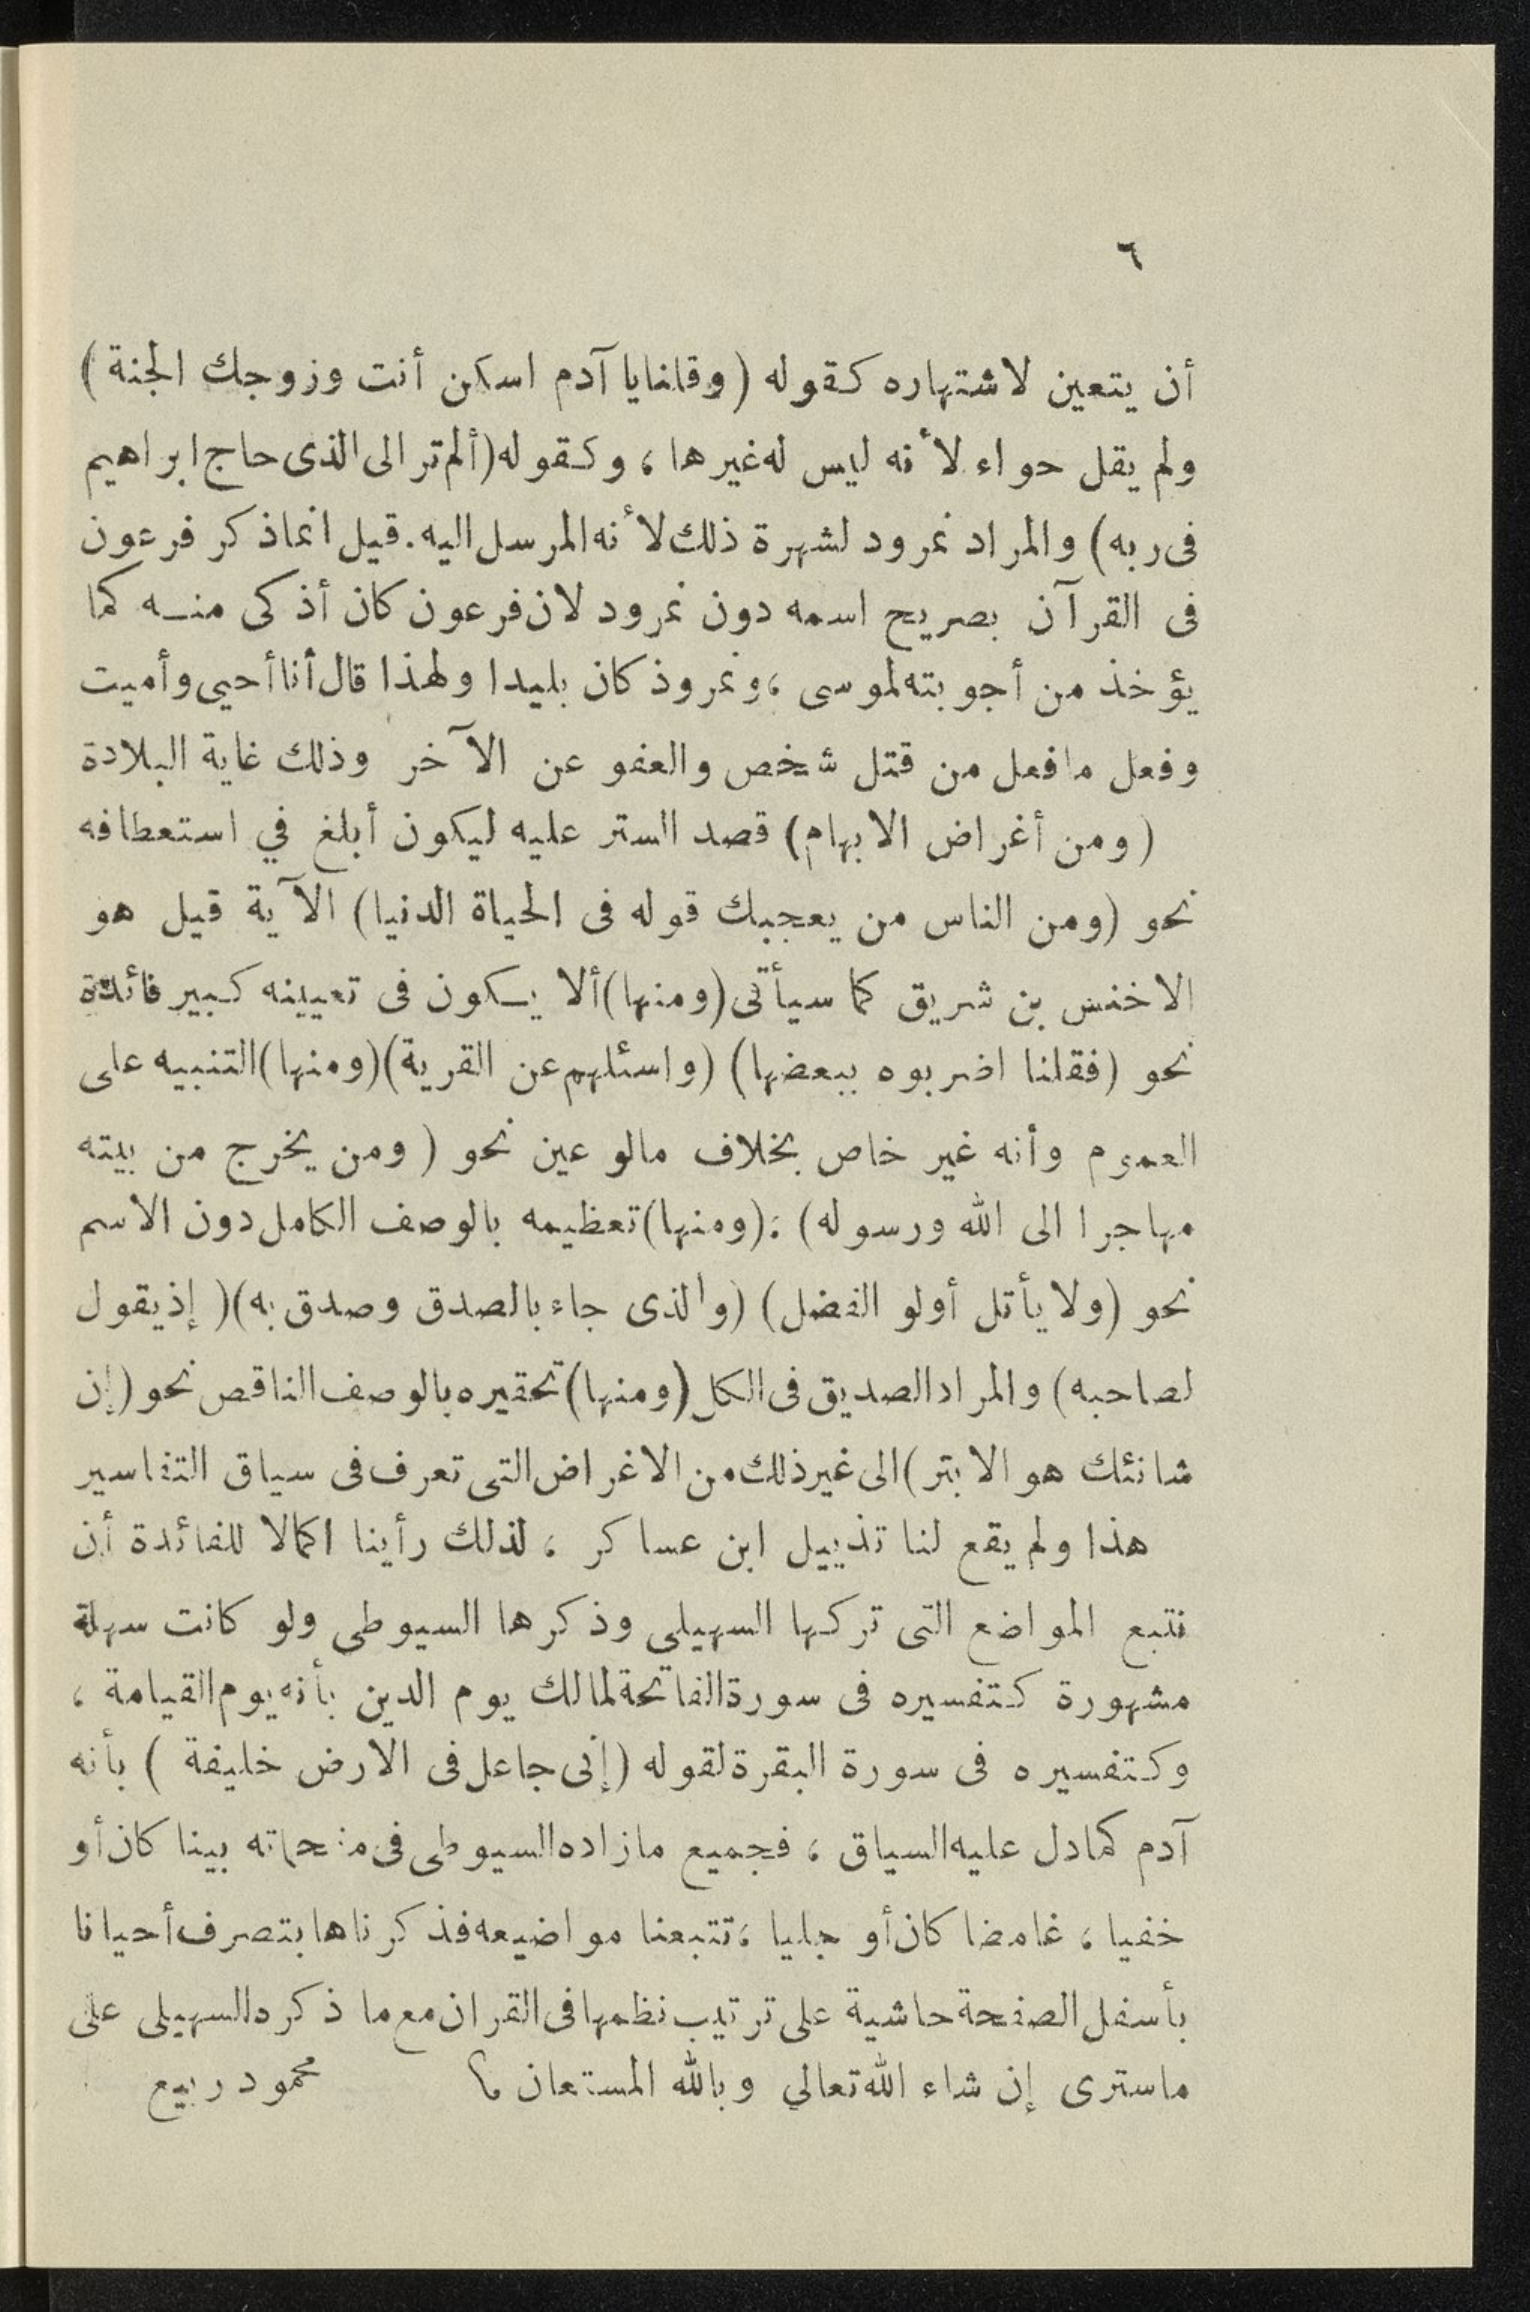 ٦
أن يتعين لاشتهاره كقوله (وقلنا يا آدم اسكن أنت وزوجك الجنة)
ولم يقل حواء لأنه ليس له غيرها ، وكقوله (ألم تر الى الذى حاج ابراهيم
فى ربه) والمراد نمرود لشهرة ذلك لأنه المرسل اليه. قيل انما ذكر فرعون
فى القرآن بصريح اسمه دون نمرود لان فرعون كان أذكى منه كما
يؤخذ من أجوبته لموسى ، ونمروذ كان بليدا ولهذا قال أنا أحيي وأميت
وفعل ما فعل من قتل شخص والعفو عن الآخر وذلك غاية البلادة
(ومن أغراض الابهام) قصد الستر عليه ليكون أبلغ في استعطافه
نحو (ومن الناس من يعجبك قوله فى الحياة الدنيا) الآية قيل هو
الاخنس بن شريق كما سيأتى (ومنها) ألا يكون فى تعيينه كبير فائدة
نحو (فقلنا اضربوه ببعضها) (واسئلهم عن القرية) (ومنها) التنبيه على
العموم وأنه غير خاص بخلاف ما لو عين نحو (ومن يخرج من بيته
مهاجرا الى الله ورسوله) ؛ (ومنها) تعظيمه بالوصف الكامل دون الاسم
نحو (ولا يأتل أولو الفضل) (والذى جاء بالصدق وصدق به) (إذ يقول
لصاحبه) والمراد الصديق فى الكل (ومنها) تحقيره بالوصف الناقص نحو (إن
شانئك هو الابتر) الى غير ذلك من الاغراض التى تعرف فى سياق التفاسير
هذا ولم يقع لنا تذييل ابن عساكر ، لذلك رأينا اكمالا للفائدة أن
نتبع المواضع التى تركها السهيلى وذكرها السيوطى ولو كانت سهلة
مشهورة كتفسيره فى سورة الفاتحة لمالك يوم الدين بأنه يوم القيامة ،
وكتفسيره فى سورة البقرة لقوله (إنى جاعل فى الارض خليفة) بأنه
آدم كما دل عليه السياق ، فجميع ما زاده السيوطى فى مفحماته بينا كان أو
خفيا ، غامضا كان أو جليا ، تتبعنا مواضيعه فذكرناها بتصرف أحيانا
بأسفل الصفحة حاشية على ترتيب نظمها فى القران مع ما ذكره السهيلى على
ما سترى إن شاء الله تعالي وبالله المستعان محمود ربيع